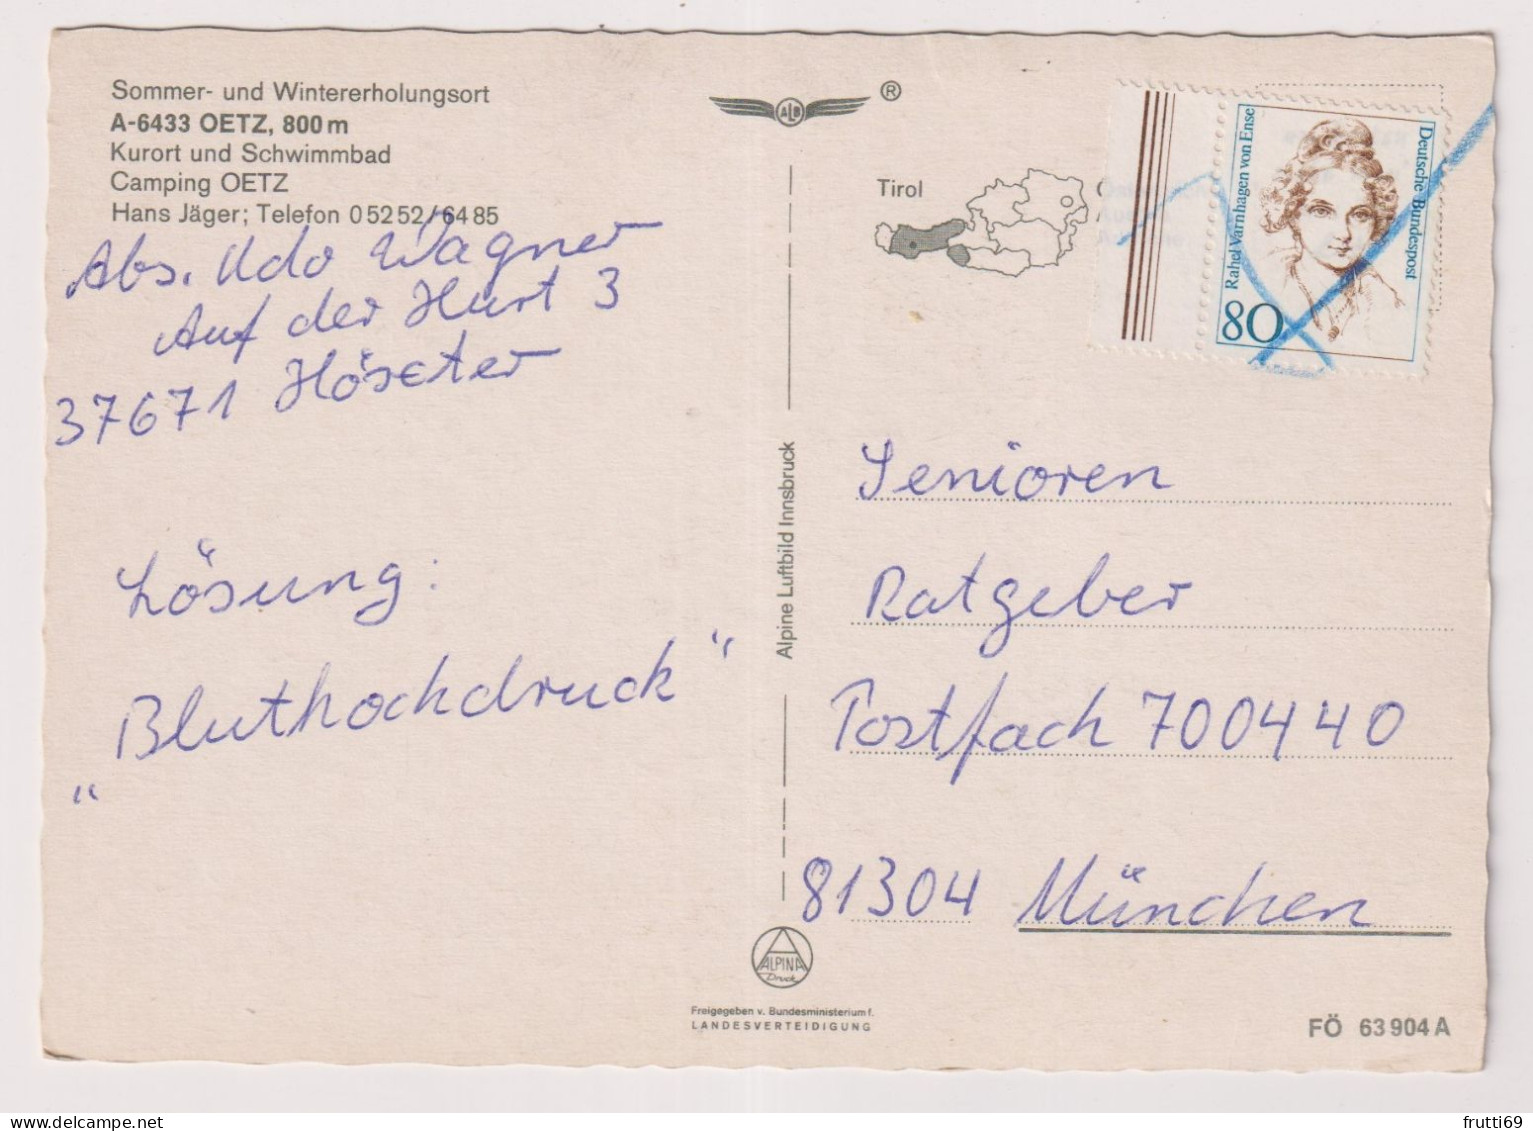 Sommer- und Wintererholungsort
A-6433 OETZ, 800 m
Kurort und Schwimmbad
Camping OETZ
Hans Jäger; Telefon 0 52 52/64 85
Abs. Udo Wagner
Auf der Hurt 3
37671 Höxter
Lösung:
„Bluthochdruck“
ALB ®
Tirol
Alpine Luftbild Innsbruck
Rahel Varnhagen von Ense
Deutsche Bundespost
80
Senioren
Ratgeber
Postfach 700440
81304 München
ALPINA
Druck
Freigegeben v. Bundesministerium f.
LANDESVERTEIDIGUNG
FÖ 63 904 A
delcampe.net
frutti69